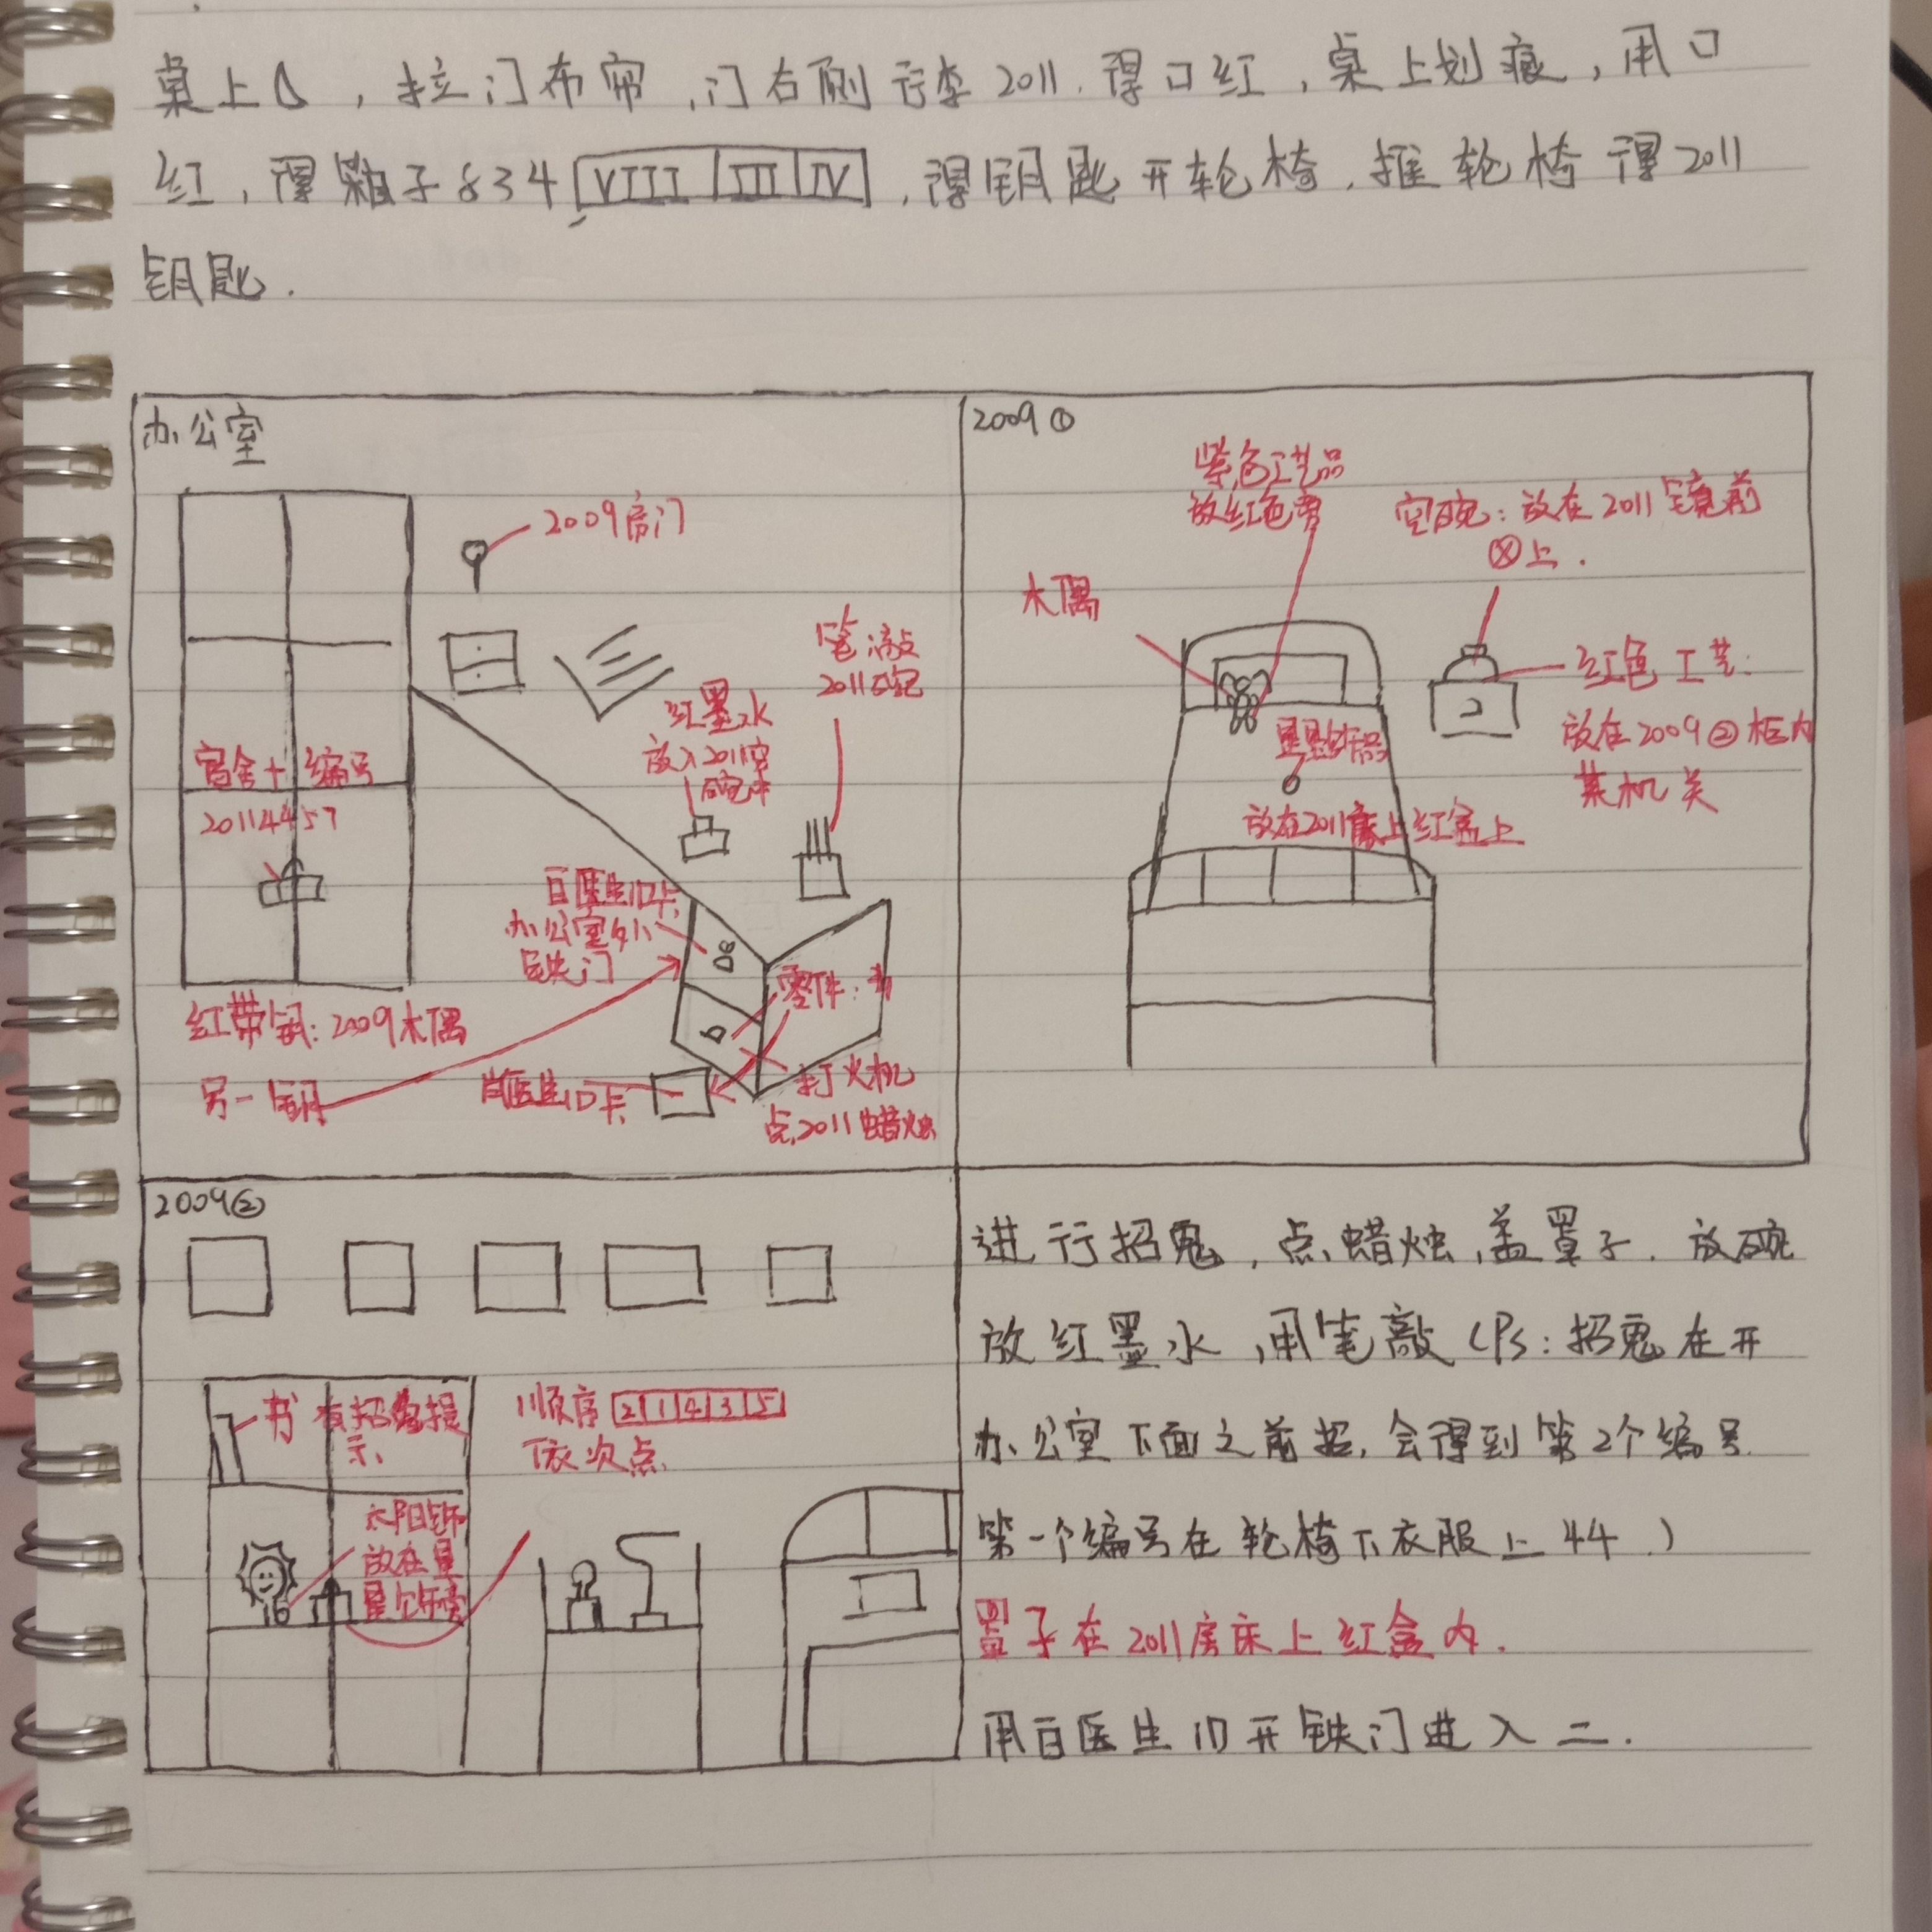 桌上，拉门布帘，门右侧行李2011.得口红，桌上划痕，用口
红，得箱子834 VIII III IV，得钥匙开轮椅，推轮椅得2011
钥匙.
办公室
2009房门
笔:敲
2011日记
红墨水
放入2011空
碗中
宿舍+编号
20114457
白医生ID卡
办公室外
铁门
零件:书
红带钥:2009木偶
另一钥
白医生ID卡
打火机
点2011蜡烛
2009①
紫色工艺品
放红色旁
空碗:放在2011镜前
⊗上.
木偶
2
红色工艺:
放在2009②柜内
某机关
星星饰品
放在2011床上红盒上
2009②
书 有招鬼提
示
顺序 2 1 4 3 5
依次点
太阳饰
放在星
星饰旁
进行招鬼，点蜡烛，盖罩子.放碗
放红墨水，用笔敲(Ps:招鬼在开
办公室下面之前招，会得到第2个编号.
第一个编号在轮椅下衣服上44.)
罩子在2011房床上红盒内.
用白医生ID开铁门进入二.